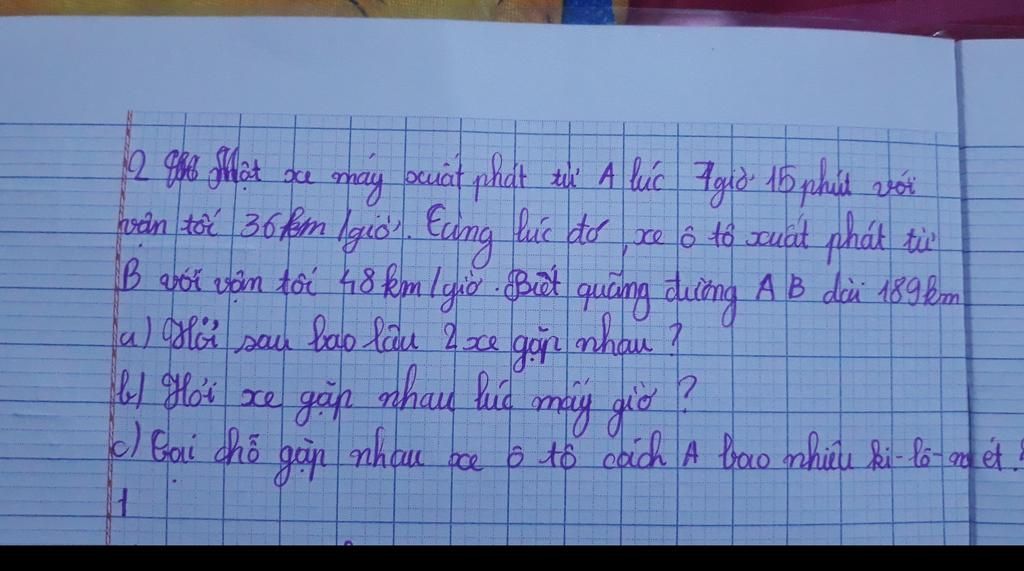 2 Một xe máy xuất phát từ A lúc 7giờ 15 phút với
vận tốc 36km/giờ. Cùng lúc đó, xe ô tô xuất phát từ
B với vận tốc 48km/giờ. Biết quãng đường AB dài 189km
a) Hỏi sau bao lâu 2 xe gặp nhau?
b) Hỏi xe gặp nhau lúc mấy giờ?
c) Tại chỗ gặp nhau xe ô tô cách A bao nhiêu ki-lô-mét?
1